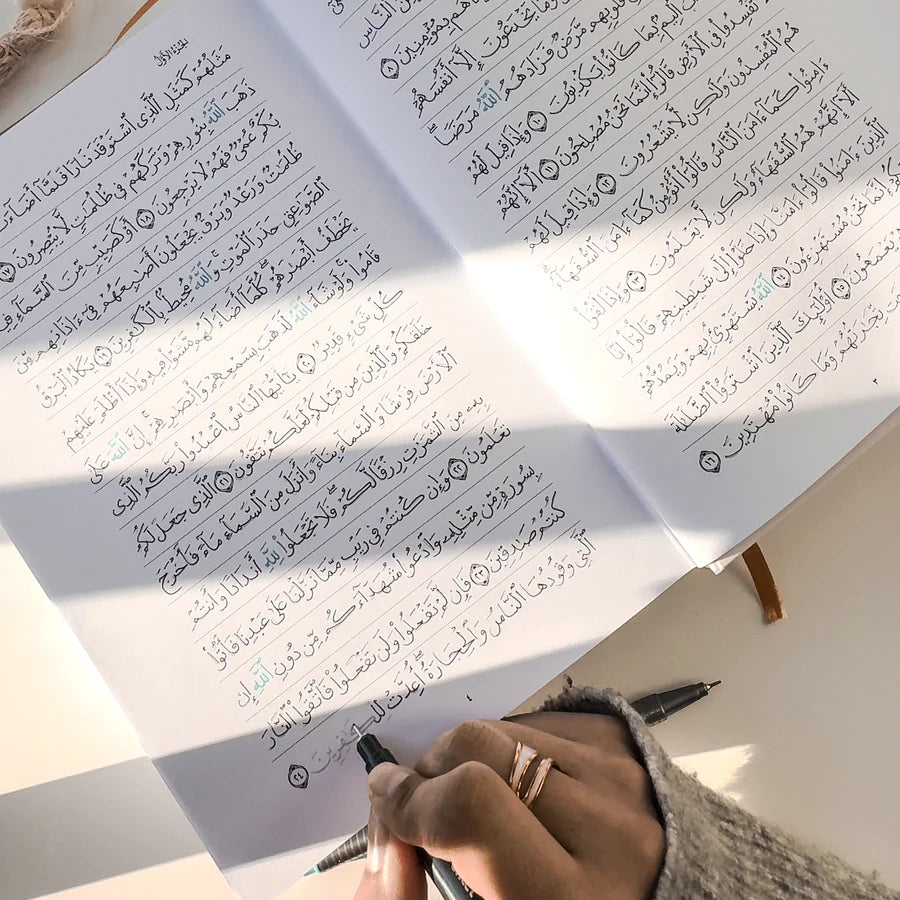 ٱلنَّاسِ
هُم بِمُؤْمِنِينَ ٨
وَمَا يَخْدَعُونَ إِلَّآ أَنفُسَهُمْ
قُلُوبِهِم مَّرَضٌ فَزَادَهُمُ ٱللَّهُ مَرَضًا ۖ
أَلِيمٌۢ بِمَا كَانُوا۟ يَكْذِبُونَ ١٠ وَإِذَا قِيلَ لَهُمْ
تُفْسِدُوا۟ فِى ٱلْأَرْضِ قَالُوٓا۟ إِنَّمَا نَحْنُ مُصْلِحُونَ ١١ أَلَآ إِنَّهُمْ
هُمُ ٱلْمُفْسِدُونَ وَلَٰكِن لَّا يَشْعُرُونَ ١٢ وَإِذَا قِيلَ لَهُمْ
ءَامِنُوا۟ كَمَآ ءَامَنَ ٱلنَّاسُ قَالُوٓا۟ أَنُؤْمِنُ كَمَآ ءَامَنَ ٱلسُّفَهَآءُ ۗ
أَلَآ إِنَّهُمْ هُمُ ٱلسُّفَهَآءُ وَلَٰكِن لَّا يَعْلَمُونَ ١٣ وَإِذَا لَقُوا۟
ٱلَّذِينَ ءَامَنُوا۟ قَالُوٓا۟ ءَامَنَّا وَإِذَا خَلَوْا۟ إِلَىٰ شَيَٰطِينِهِمْ قَالُوٓا۟ إِنَّا
إِنَّمَا نَحْنُ مُسْتَهْزِءُونَ ١٤ ٱللَّهُ يَسْتَهْزِئُ بِهِمْ وَيَمُدُّهُمْ
يَعْمَهُونَ ١٥ أُو۟لَٰٓئِكَ ٱلَّذِينَ ٱشْتَرَوُا۟ ٱلضَّلَٰلَةَ
تِّجَٰرَتُهُمْ وَمَا كَانُوا۟ مُهْتَدِينَ ١٦
٣
الجزء الأول
مَثَلُهُمْ كَمَثَلِ ٱلَّذِى ٱسْتَوْقَدَ نَارًا فَلَمَّآ أَضَآءَتْ
ذَهَبَ ٱللَّهُ بِنُورِهِمْ وَتَرَكَهُمْ فِى ظُلُمَٰتٍ لَّا يُبْصِرُونَ ١٧
بُكْمٌ عُمْىٌ فَهُمْ لَا يَرْجِعُونَ ١٨ أَوْ كَصَيِّبٍ مِّنَ ٱلسَّمَآءِ فِيهِ
ظُلُمَٰتٌ وَرَعْدٌ وَبَرْقٌ يَجْعَلُونَ أَصَٰبِعَهُمْ فِىٓ ءَاذَانِهِم مِّنَ
ٱلصَّوَٰعِقِ حَذَرَ ٱلْمَوْتِ ۚ وَٱللَّهُ مُحِيطٌۢ بِٱلْكَٰفِرِينَ ١٩ يَكَادُ ٱلْبَرْقُ
يَخْطَفُ أَبْصَٰرَهُمْ ۖ كُلَّمَآ أَضَآءَ لَهُم مَّشَوْا۟ فِيهِ وَإِذَآ أَظْلَمَ عَلَيْهِمْ
قَامُوا۟ ۚ وَلَوْ شَآءَ ٱللَّهُ لَذَهَبَ بِسَمْعِهِمْ وَأَبْصَٰرِهِمْ ۚ إِنَّ ٱللَّهَ عَلَىٰ
كُلِّ شَىْءٍ قَدِيرٌ ٢٠ يَٰٓأَيُّهَا ٱلنَّاسُ ٱعْبُدُوا۟ رَبَّكُمُ ٱلَّذِى
خَلَقَكُمْ وَٱلَّذِينَ مِن قَبْلِكُمْ لَعَلَّكُمْ تَتَّقُونَ ٢١ ٱلَّذِى جَعَلَ لَكُمُ
ٱلْأَرْضَ فِرَٰشًا وَٱلسَّمَآءَ بِنَآءً وَأَنزَلَ مِنَ ٱلسَّمَآءِ مَآءً فَأَخْرَجَ
بِهِۦ مِنَ ٱلثَّمَرَٰتِ رِزْقًا لَّكُمْ ۖ فَلَا تَجْعَلُوا۟ لِلَّهِ أَندَادًا وَأَنتُمْ
تَعْلَمُونَ ٢٢ وَإِن كُنتُمْ فِى رَيْبٍ مِّمَّا نَزَّلْنَا عَلَىٰ عَبْدِنَا فَأْتُوا۟
بِسُورَةٍ مِّن مِّثْلِهِۦ وَٱدْعُوا۟ شُهَدَآءَكُم مِّن دُونِ ٱللَّهِ إِن
كُنتُمْ صَٰدِقِينَ ٢٣ فَإِن لَّمْ تَفْعَلُوا۟ وَلَن تَفْعَلُوا۟ فَٱتَّقُوا۟ ٱلنَّارَ
ٱلَّتِى وَقُودُهَا ٱلنَّاسُ وَٱلْحِجَارَةُ ۖ أُعِدَّتْ لِلْكَٰفِرِينَ ٢٤
٤